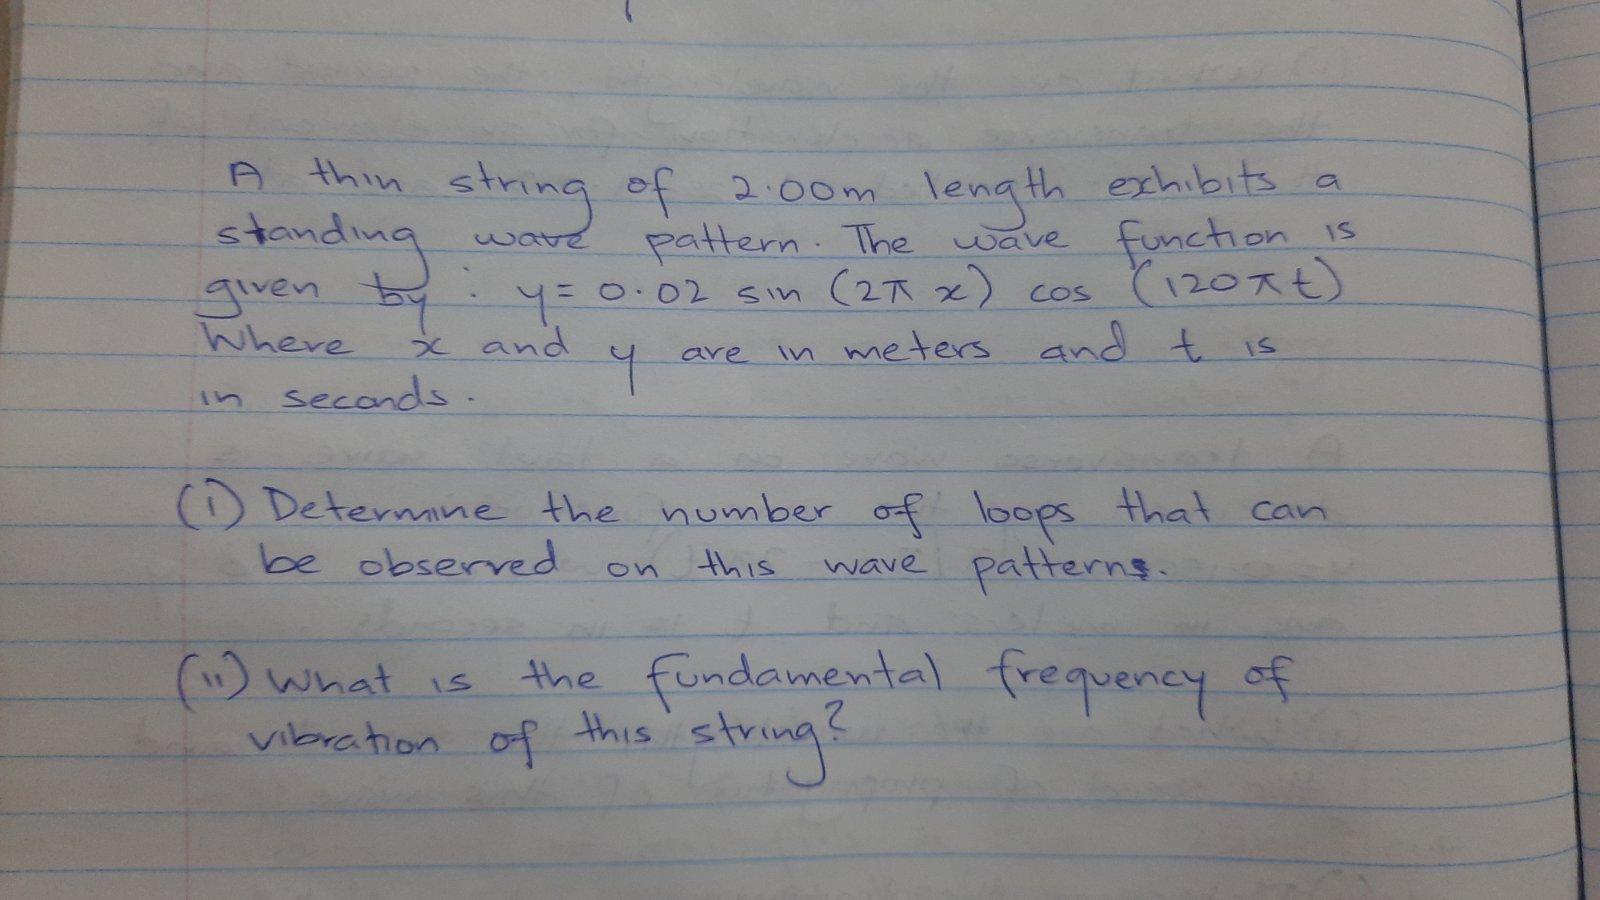 A thin string of 2.00m length exhibits a
standing wave pattern. The wave function is
given by : y= 0.02 sin (2π x) cos (120πt)
Where x and y are in meters and t is
in seconds.
(i) Determine the number of loops that can
be observed on this wave pattern.
(ii) What is the fundamental frequency of
vibration of this string?